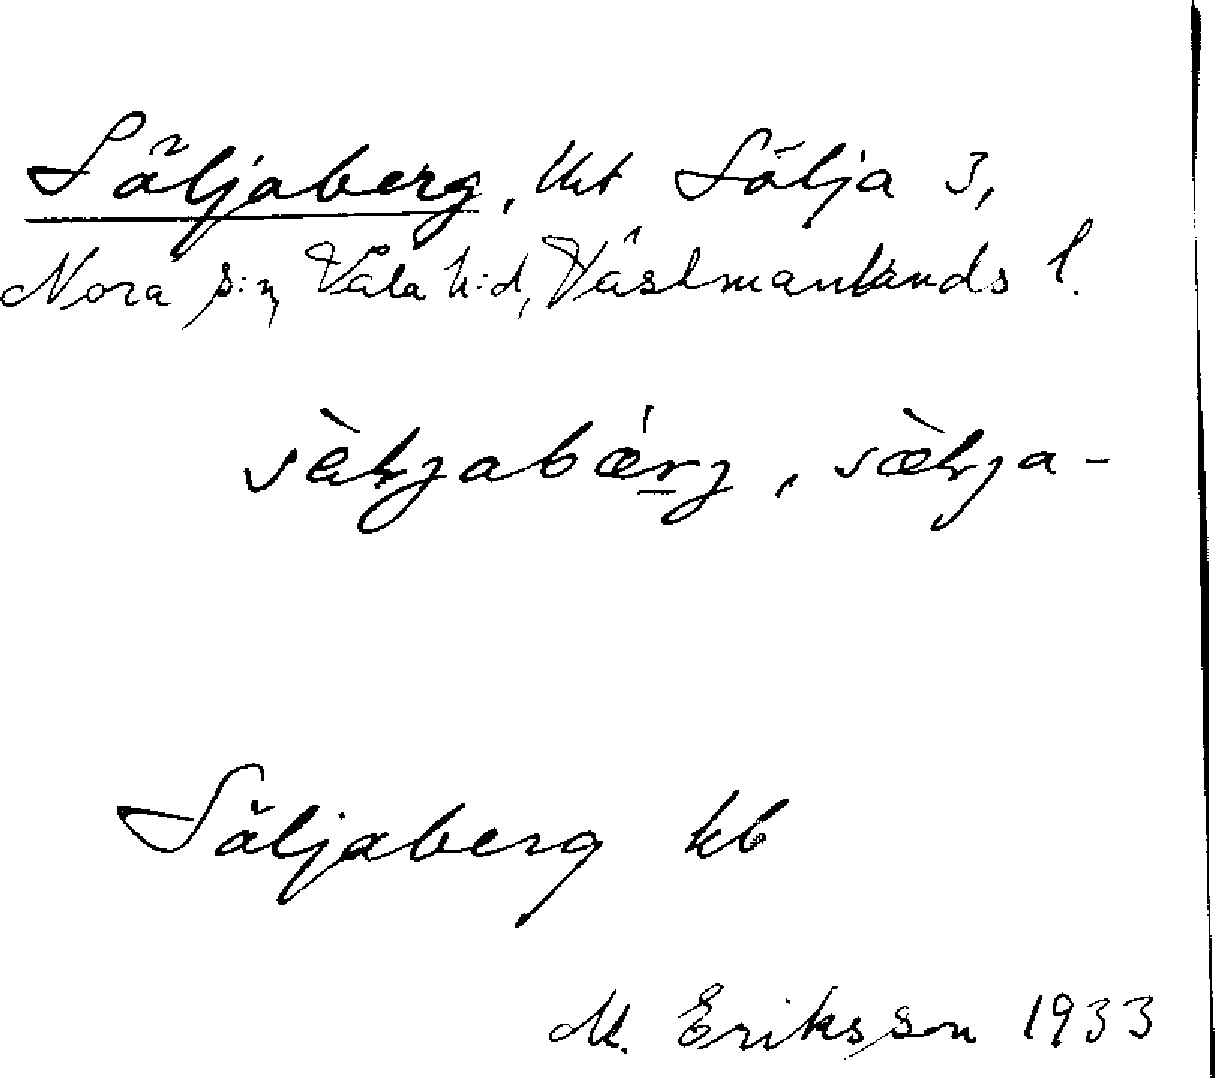 Säljaberg, Ut Sälja 3,
Nora s:n, Våla h:d, Västmanlands l.
sèḷjabǽrj, sæ̀ḷja-
Säljaberg kb
M. Eriksson 1933